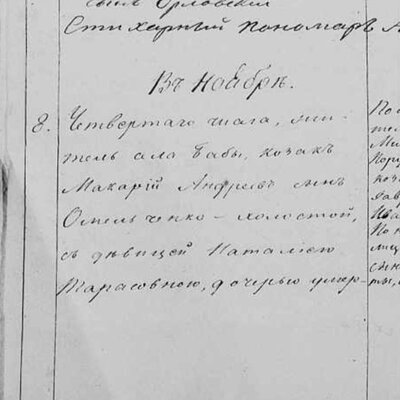 сынъ Орловскій
Стихарный Пономарь
Въ Ноябрѣ.
8. Четвертаго числа, жи-
тель села Бабы, козакъ
Макарій Андреевъ сынъ
Омельченко - холостой,
съ дѣвицей Наталіею
Тарасовною, дочерью умер-